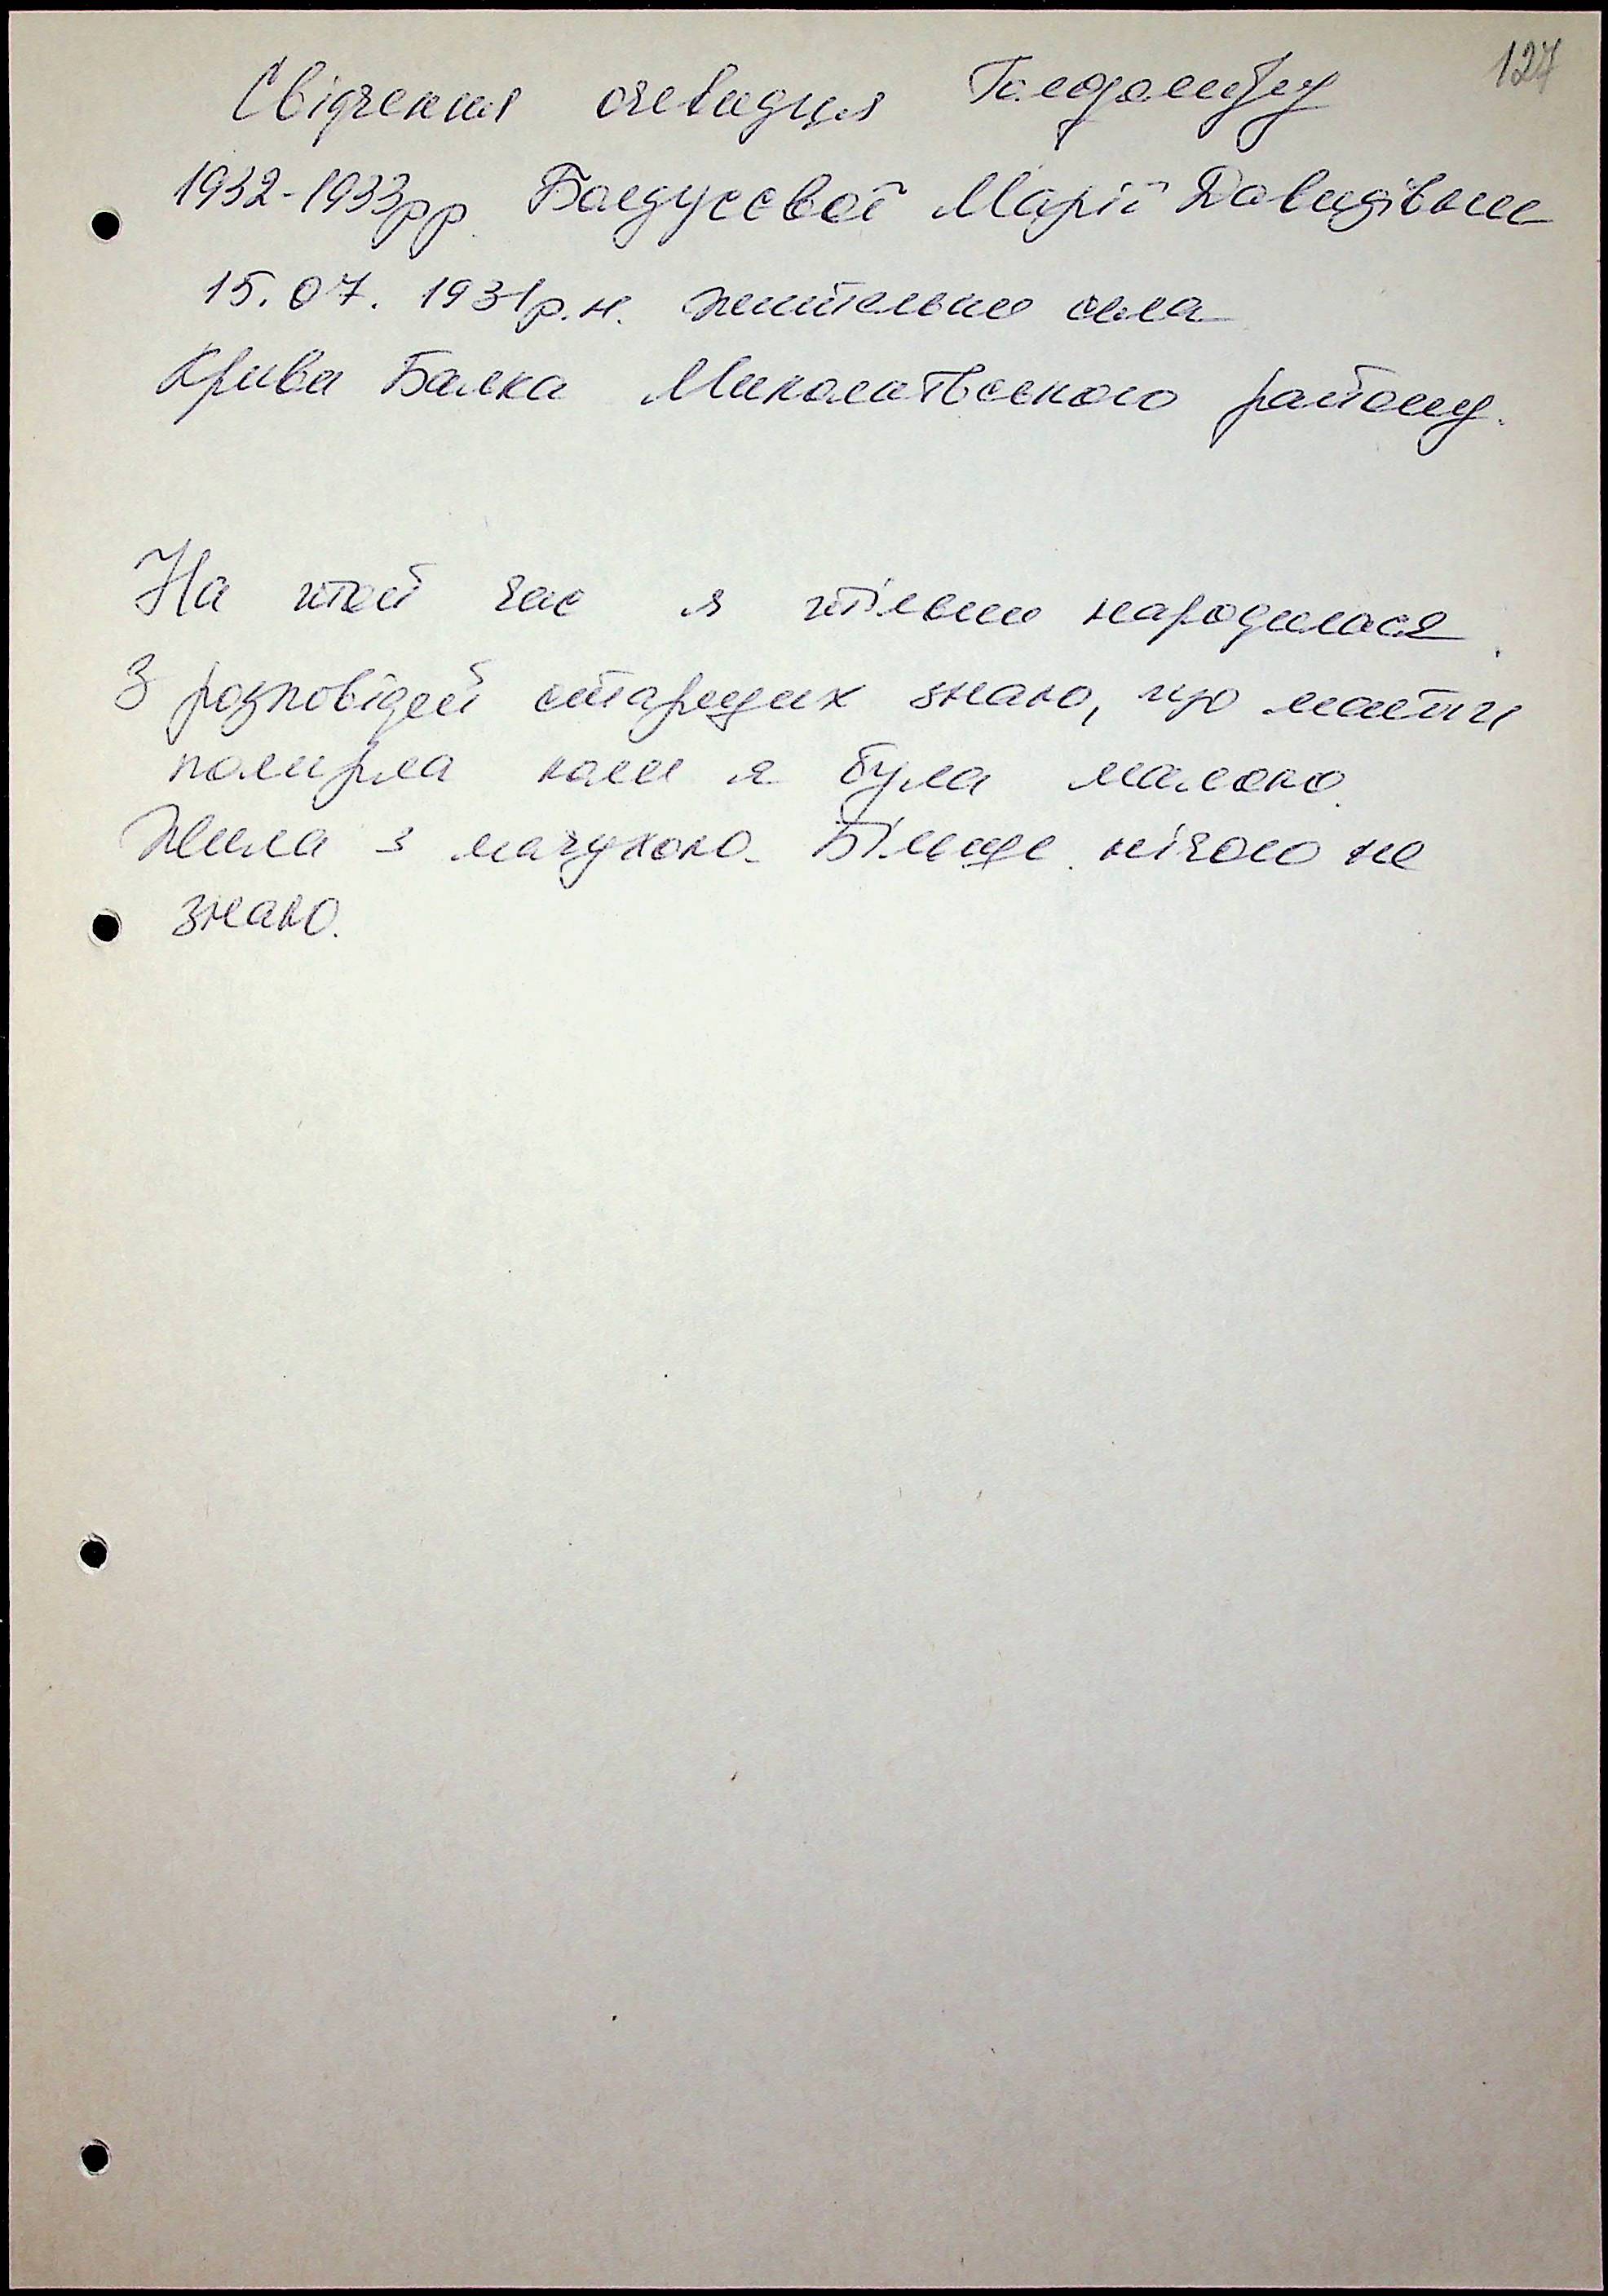 127
Свідчення очевидця Голодомору
1932-1933рр. Болдусєвої Марії Давидівни
15.07.1931р.н. жительки села
Крива Балка Миколаївського району.
На той час я тільки народилася.
З розповідей старших знаю, що мати
померла коли я була малою.
Жила з мачухою. Більше нічого не
знаю.